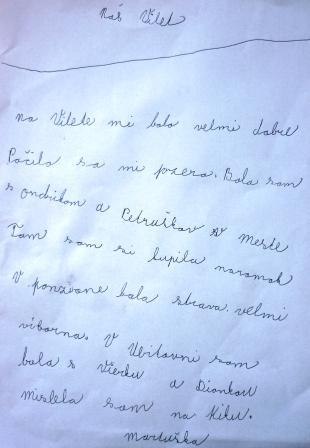 Náš Vílet
na Vílete mi bolo velmi dobre
Páčilo sa mi pzera. Bola som
s ondrikom a Petruškov v meste
Tam som si kupila naramok
V ponzione bola strava. velmi
víborna. V Ubitovni som
bola s Vierku a Diankou
mislela som na Kiku.
Martuška